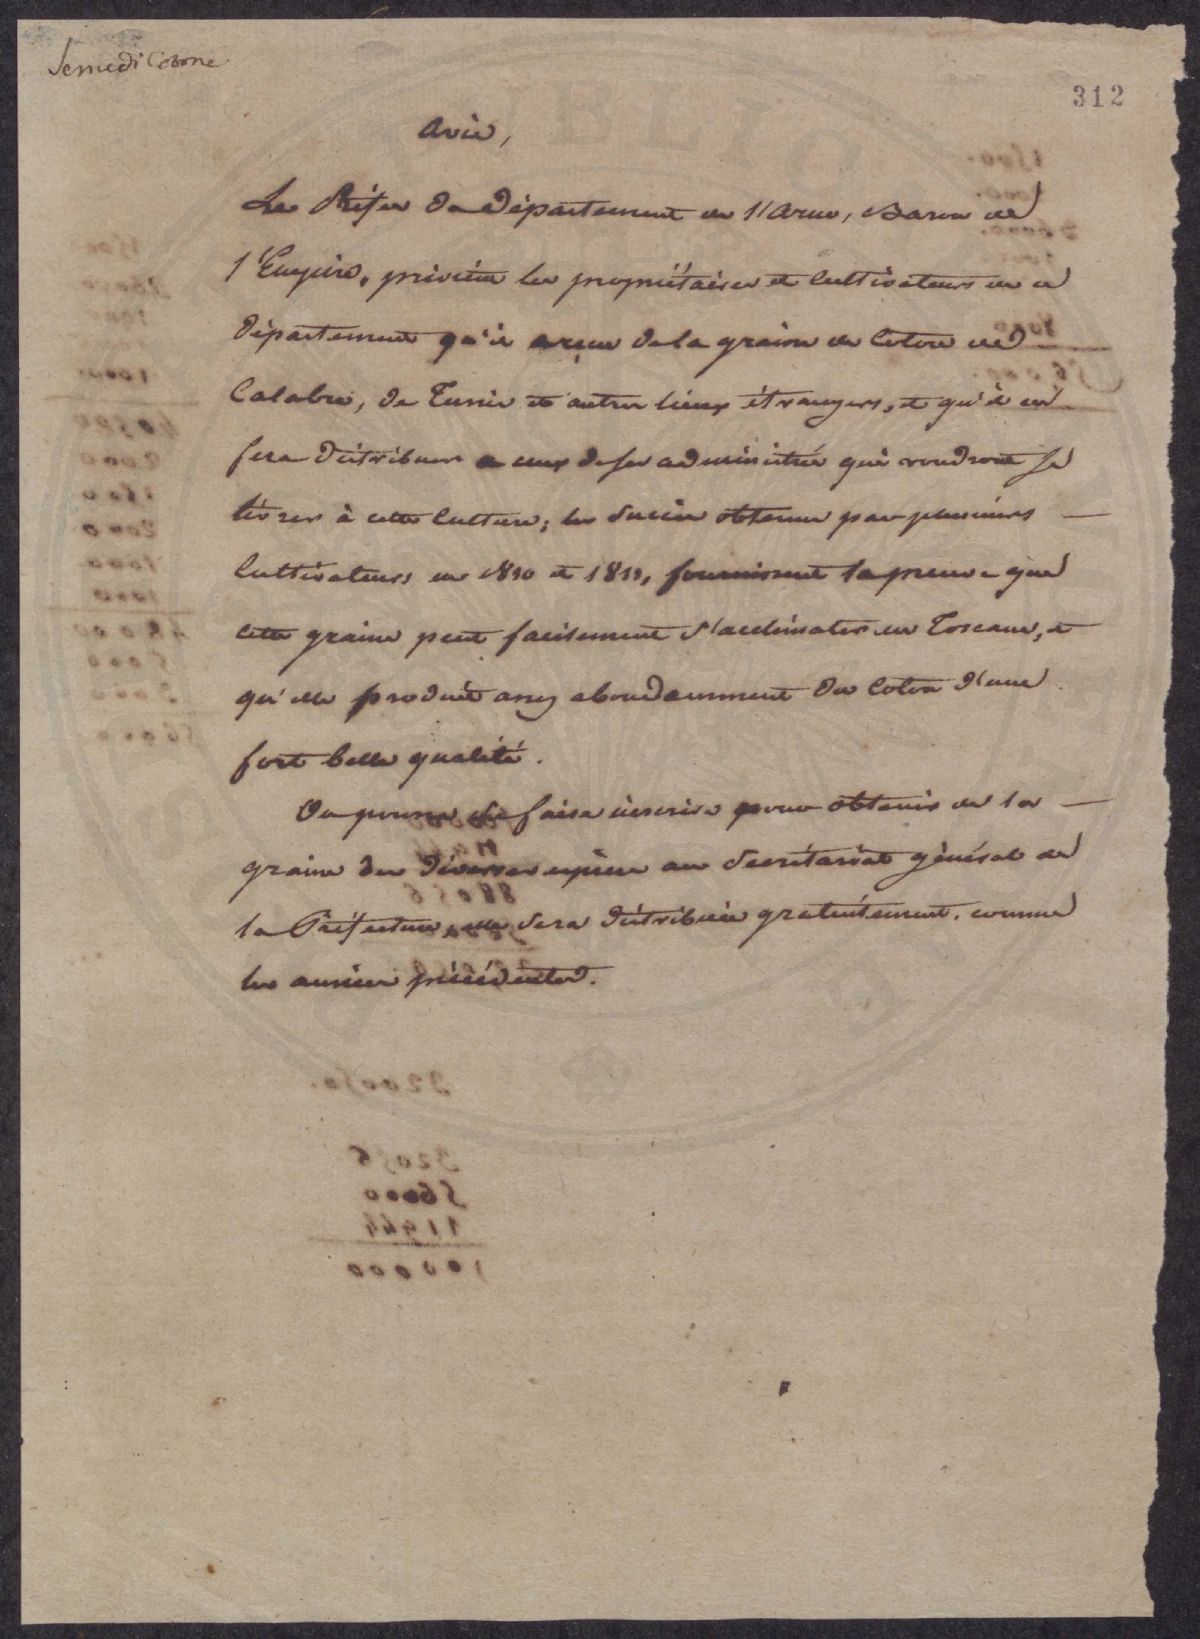 Seme di Cotone
312
Avis,
Le Préfet du département de l'Arno, Baron de
l'Empire, prévient les propriétaires et cultivateurs de ce
département qu'il a reçu de la graine de Coton de
Calabre, de Tunis et autres lieux étrangers, et qu'il en
fera distribuer a ceux de ses administrés qui voudront se
livrer à cette culture; les succès obtenus par plusieurs
Cultivateurs en 1810 et 1811, fournissent la preuve que
cette graine peut facilement s'acclimater en Toscane, et
qu'elle produit assez abondamment du Coton d'une
fort belle qualité.
On pourra se faire inscrire pour obtenir de la
graine des diverses espèces au Secrétariat général de
la Préfecture, elle sera distribuée gratuitement, comme
les années précédentes.
32056
56000
11944
100000